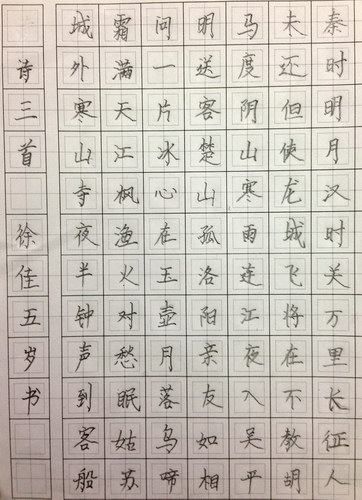 秦时明月汉时关万里长征人
未还但使龙城飞将在不教胡
马度阴山寒雨连江夜入吴平
明送客楚山孤洛阳亲友如相
问一片冰心在玉壶月落乌啼
霜满天江枫渔火对愁眠姑苏
城外寒山寺夜半钟声到客船
诗三首 徐佳五岁书